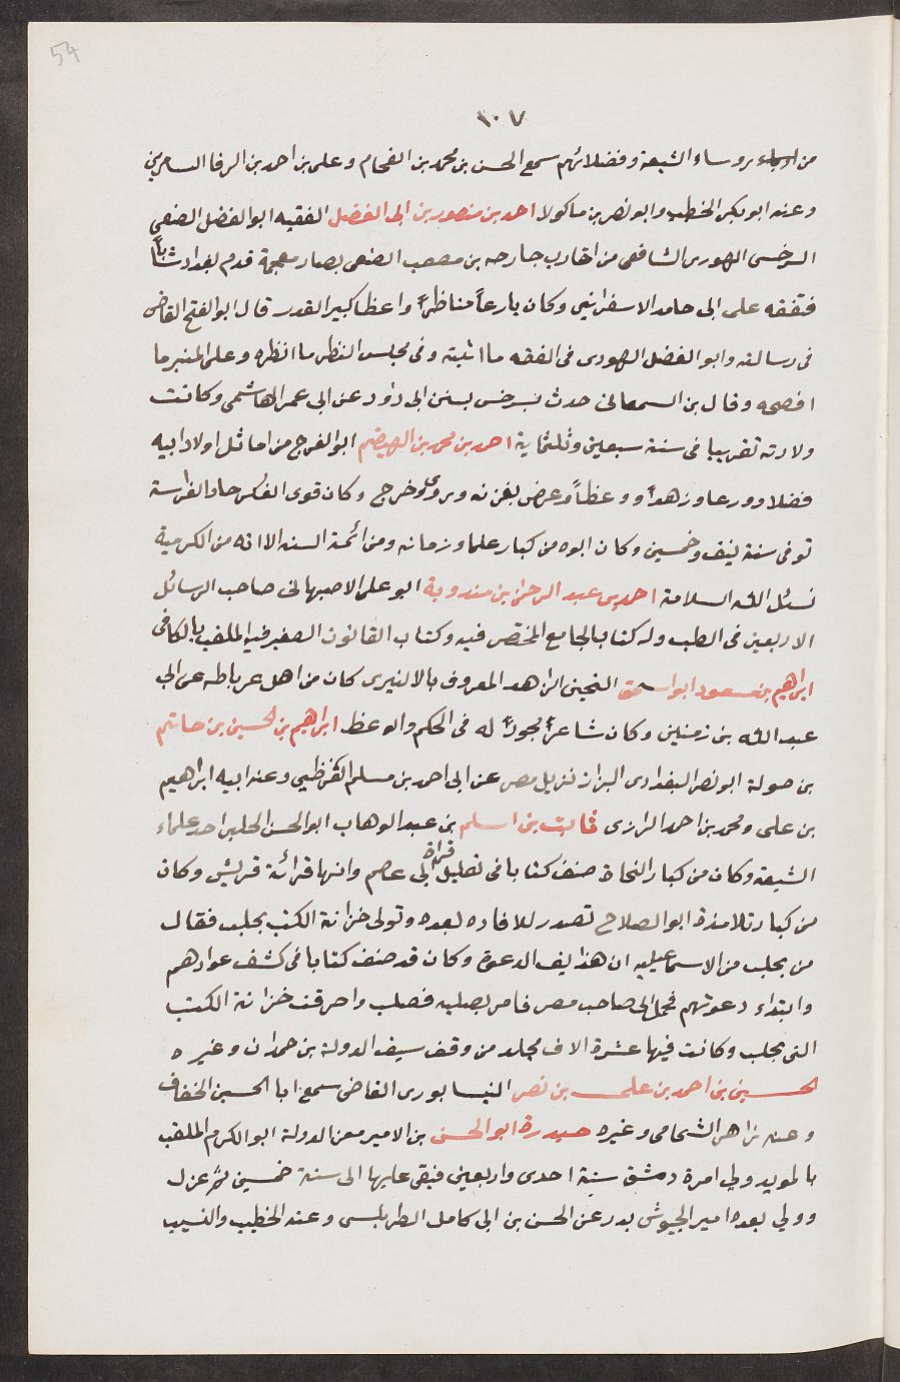 54
١٠٧
من رؤساء الشيعة وفضلائهم سمع الحسن بن محمد بن الفحام وعلى بن احمد بن الرفا السامريين
وعنه ابو بكر الخطيب وابو نصر بن ماكولا احمد بن منصور بن ابى الفضل الفقيه ابو الفضل الضبعى
السرخسى الهورى الشافعى من اقارب خارجه بن مصعب الضبعى بضاد معجمة قدم بغداد شابا
فتفقه على ابى حامد الاسفرائينى وكان بارعاً مناظراً واعظا كبير القدر قال ابو الفتح القاضى
فى رسالته وابو الفضل الهورى فى الفقه ما اثبته وفى مجلس النظر ما انظره وعلى المنبر ما
افصحه وقال بن السمعانى حدث بسرخس بسنن ابى داود عن ابى عمر الهاشمى وكانت
ولادته تقريبا فى سنة سبعين وثلثماية احمد بن محمد بن الهيضم ابو الفرج من اماثل اولاد ابيه
فضلا وورعا وزهداً ووعظاً وعرض بغزنه وبروى وخرج وكان قوى الفكر حاد الفراسة
توفى سنة نيف وخمسين وكان ابوه من كبار علماء زمانه ومن ائمة السنه الا انه من الكرمية
نسئل الله السلامة احمد بن عبد الرحمن بن مندوية ابو على الاصبهانى صاحب الرسائل
الاربعين فى الطب وله كتاب الجامع المختصر فيه وكتاب القانون الصغير فيه الملقب بالكافى
ابراهيم بن مسعود ابو اسحق التجيبى الزاهد المعروف بالالبيرى كان من اهل غرناطه عن ابى
عبد الله بن زمنين وكان شاعراً مجوداً له فى الحكم والوعظ ابراهيم بن الحسين بن حاتم
بن صولة ابو نصر البغدادى البزاز نزيل مصر عن ابى احمد بن مسلم الفرظبى وعنه ابيه ابراهيم
بن على ومحمد بن احمد الرازى ثابت بن اسلم بن عبد الوهاب ابو الحسن الحلبى احد علماء
الشيعة وكان من كبار النحاة صنف كتابا فى تعليل قراة ابى عاصم وانها قرائة قريش وكان
من كبار تلامذة ابو الصلاح تصدر للافاده بعده وتولى خزانة الكتب بحلب فقال
من بحلب من الاسماعيليه ان هذا يفسد الدعوة وكان قد صنف كتابا فى كشف عوارهم
وابتداء دعوتهم فحمل الى صاحب مصر فامر بصلبه فصلب واحرقت خزانة الكتب
التى بحلب وكانت فيها عشرة الاف مجلد من وقف سيف الدولة بن حمدان وغيره
الحسين بن احمد بن على بن نصر النيسابورى القاضى سمع ابا الحسين الخفاف
وعنه زاهر الشحامى وغيره حيدرة ابو الحسن بن الامير معز الدولة ابو الكرم الملقب
بالمويد ولى امرة دمشق سنة احدى واربعين فبقى عليها الى سنة خمسين ثم عزل
وولى بعده امير الجيوش بدر عن الحسن بن ابى كامل الطرابلسى وعنه الخطيب والنسيب